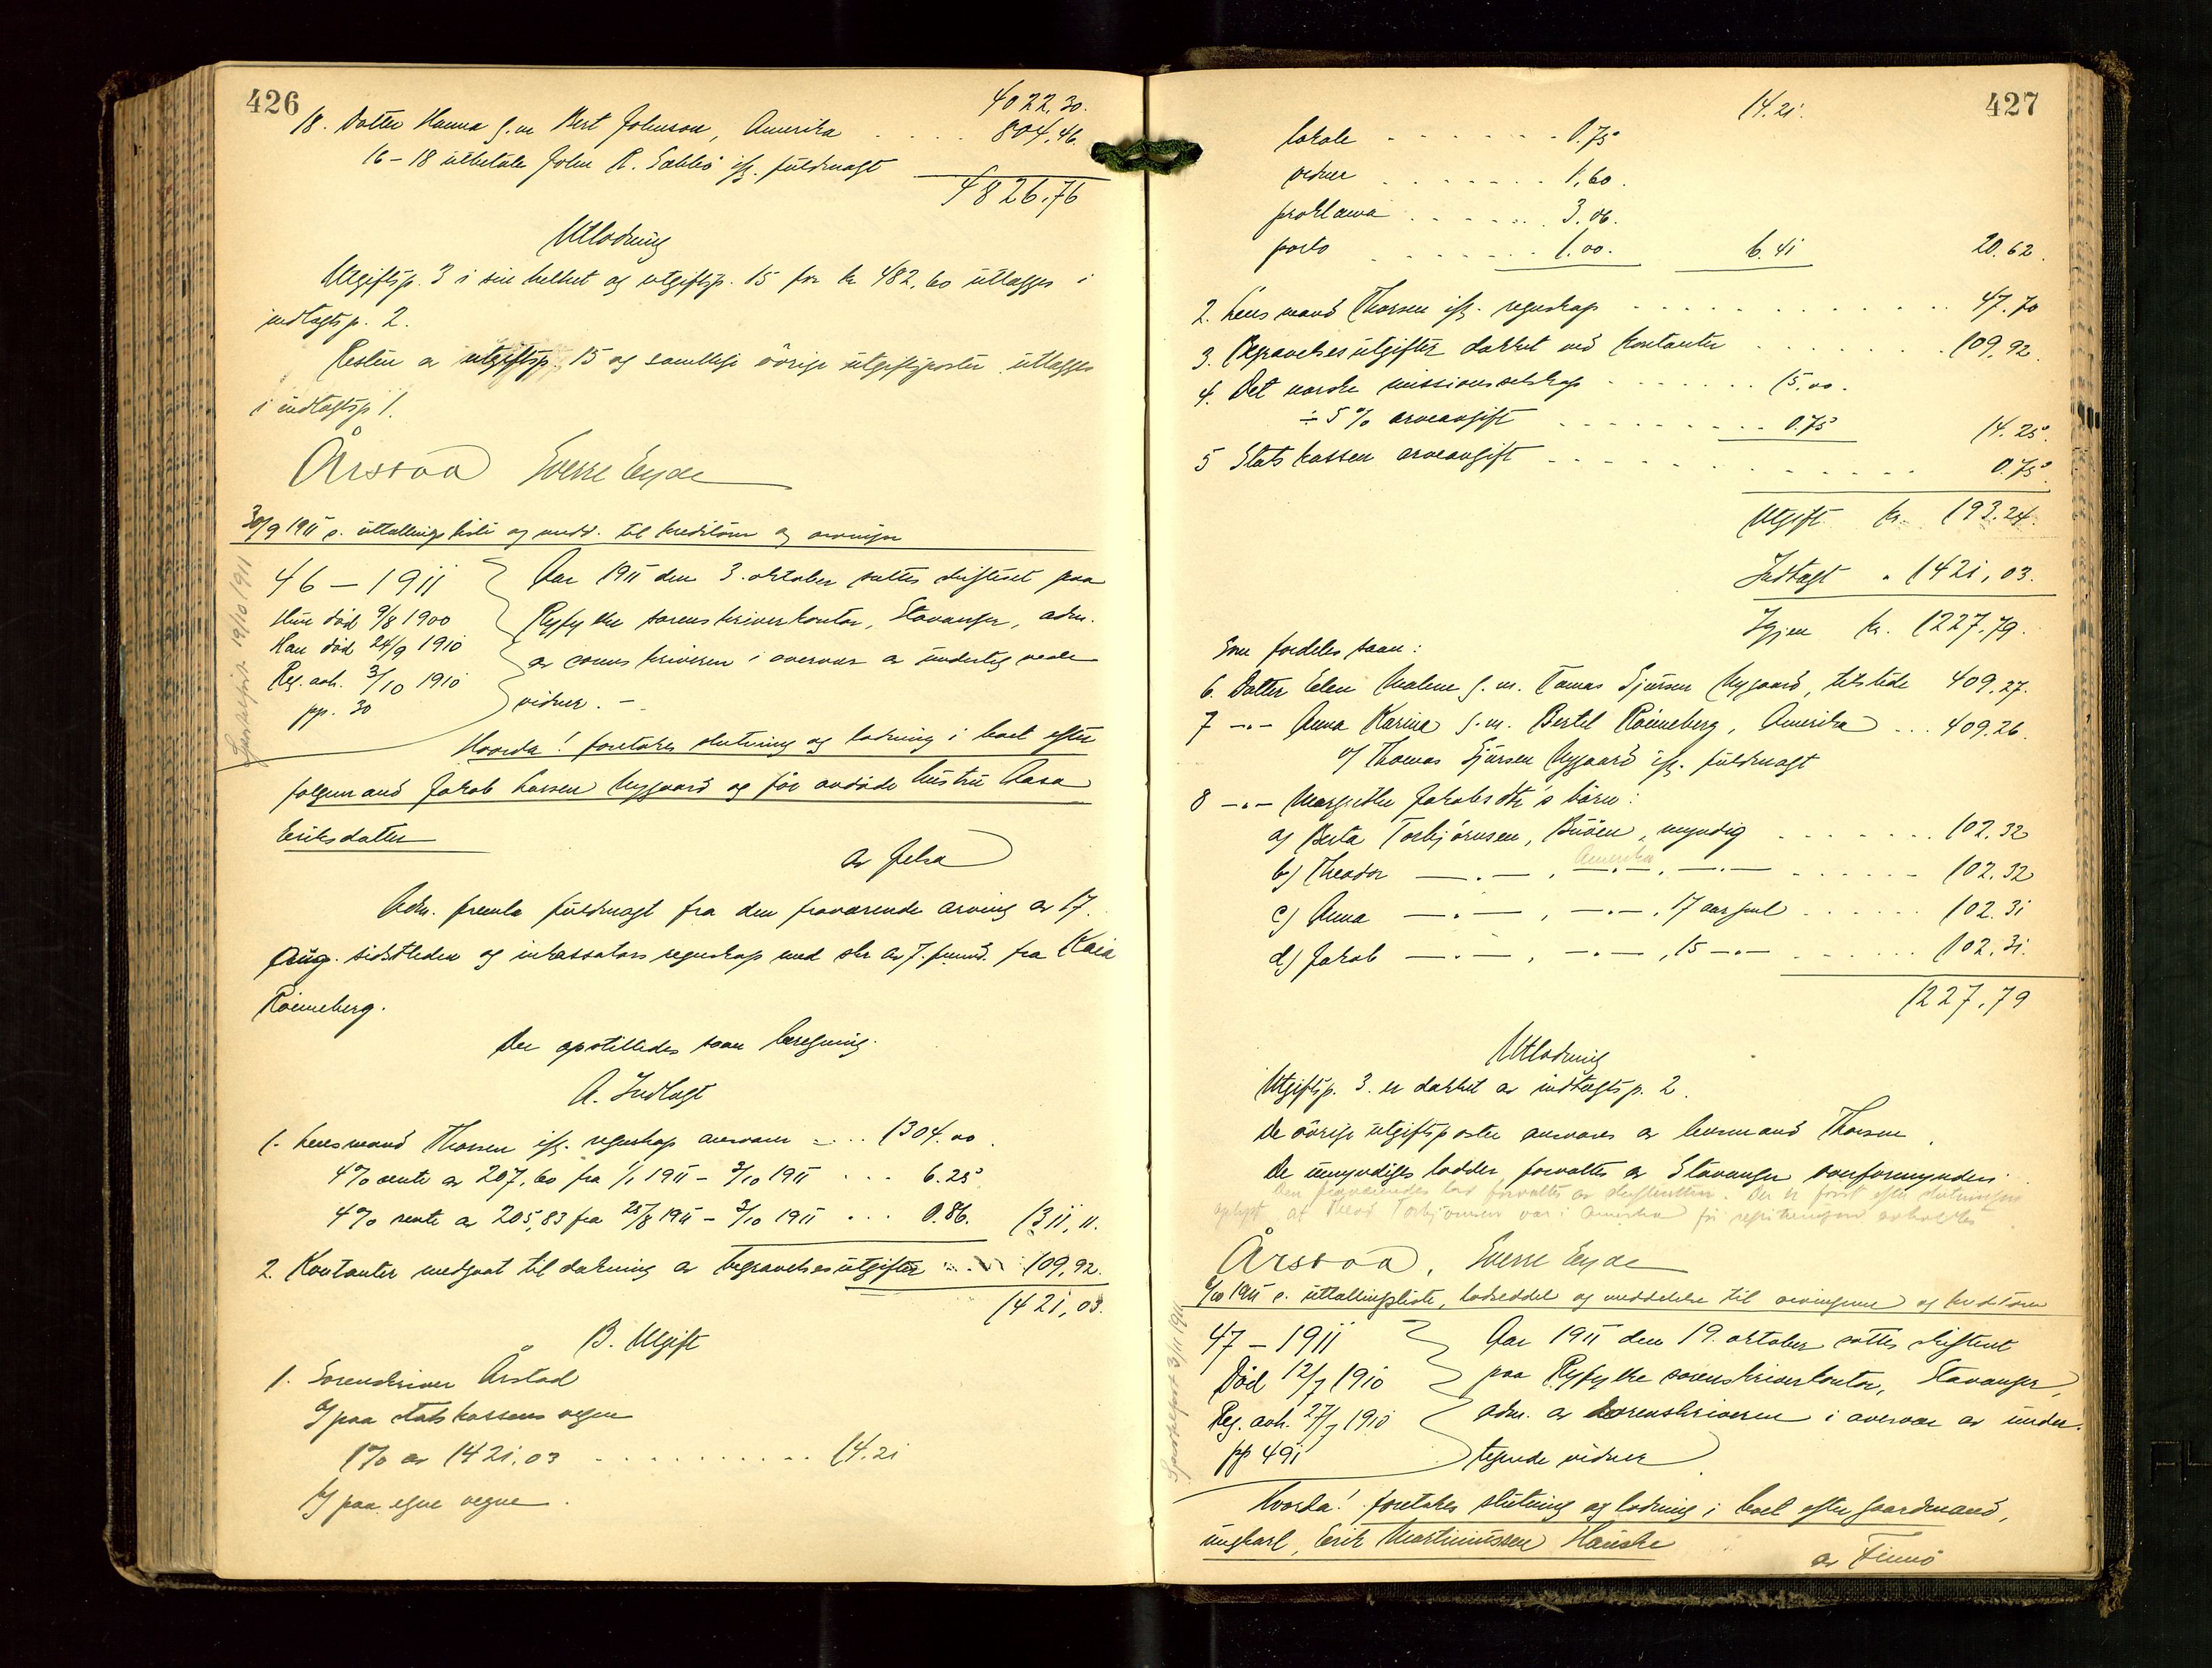 426
4022,30.
18. Datter Hanna g.m. Bert Johnson, Amerika . . . . 804,46.
16-18 utbetale John R. ifg. fuldmagt
4826.76
Utlodning
Utgiftsp. 3 i sin helhet og utgiftsp. 15 for kr 482,60 utlægges i
indtægtsp. 2.
Resten av utgiftsp. 15 og samtlige övrige utgiftsposter utlægges
i indtægtsp 1.
Årstad Sverre Eyde
30/9 1911 s. uttallingsliste og medd. til kreditorer og arvinger
19/10 1911
46 - 1911
Hun död 9/8 1900
Han död 24/9 1910
Reg. avh. 3/10 1910
pp. 30
Aar 1911 den 3. oktober sattes skifteret paa
Ryfylke sorenskriverkontor, Stavanger, adm.
av sorenskriveren i overvær av undertegnede
vidner. -
Hvorda! foretokes slutning og lodning i boet efter
folgemand Jakob Larsen Nygaard og för avdöde hustru Aasa
Eriksdatter
av Jelsa
Adm. fremla fuldmagt fra den fraværende arving av 17.
Aug. sidstleden og inkassators regnskap med skr. av 7. fra Kaia
Rönneberg.
Der opstilledes saan beregning.
A. Indtægt
1. Lensmand Thorsen ifg. regnskap ansvarer . . . 1304.00.
4% rente av 207,60 fra 1/1 1911 - 3/10 1911 . . . 6.25
4% rente av 205,83 fra 25/8 1911 - 3/10 1911 . . . 0.86. 1311,11.
2. Kontanter medgaat til dækning av begravelsesutgifter . . . 109,92.
1421,03.
B. Utgift
1. Sorenskriver Årstad
a) paa statskassens vegne
1% av 1421.03 . . . . . . . . . . 14.21
b) paa egne vegne.
427
14.21.
lokale . . . . . . . 0.75
vidner . . . . . . . 1.60.
proklama . . . . . . 3.06.
porto . . . . . . . 1.00. 6.41 20.62.
2. Lensmand Thorsen ifg. regnskap . . . . . . . . . . . . 47.70
3. Begravelsesutgifter dækket med kontanter . . . . . . . 109,92.
4. Det norske missionsselskap . . . . . . . 15.00.
÷ 5% arveavgift . . . . . . . . . 0.75 14.25.
5 Statskassen arveavgift . . . . . . . . . . . . 0.75.
Utgift kr. 193.24.
Indtægt " 1421,03.
Igjen kr. 1227,79.
som fordeles saan:
6. Datter Elen Malene g.m. Tomas Sjursen Nygaard, tilstede 409,27.
7 -"- Anna Karina g.m. Bertel Rönneberg, Amerika . . . 409.26.
v/ Thomas Sjursen Nygaard ifg. fuldmagt
8 -"- Margrethe Jakobsdtr's börn:
a) Berta Torbjörnsen, Buöen, myndig . . . . . . . . 102.32
Amerika
b) Theodor -"-, -"-, -"- . . . . . . 102.32
c) Anna -"-, -"-, 17 aar gml . . . . . . 102.31
d) Jakob -"-, -"-, 15 -"- . . . . . . 102,31.
1227,79
Utlodning
Utgiftsp. 3. er dækket av indtægtsp. 2.
De övrige utgiftsposter ansvares av lensmand Thorsen.
De umyndiges lodder forvaltes av Stavanger overformynderi.
Den fraværendes lod forvaltes av skifteretten. Det er först efter slutningen
oplyst at Theod Torbjörnsen var i Amerika för registreringen avholdtes.
Årstad, Sverre Eyde
1911 s. uttallingsliste, lodseddel og meddelelse til arvingene og kreditorer
3/11 1911
47 - 1911
Död 12/7 1910
Reg. avh. 27/7 1910
pp 491
Aar 1911 den 19. oktober sattes skifteret
paa Ryfylke sorenskriverkontor, Stavanger,
adm. av sorenskriveren i overvær av under-
tegnede vidner
Hvorda! foretokes slutning og lodning i boet efter gaardmand,
ungkarl, Erik Martinussen Hauske
av Finnö